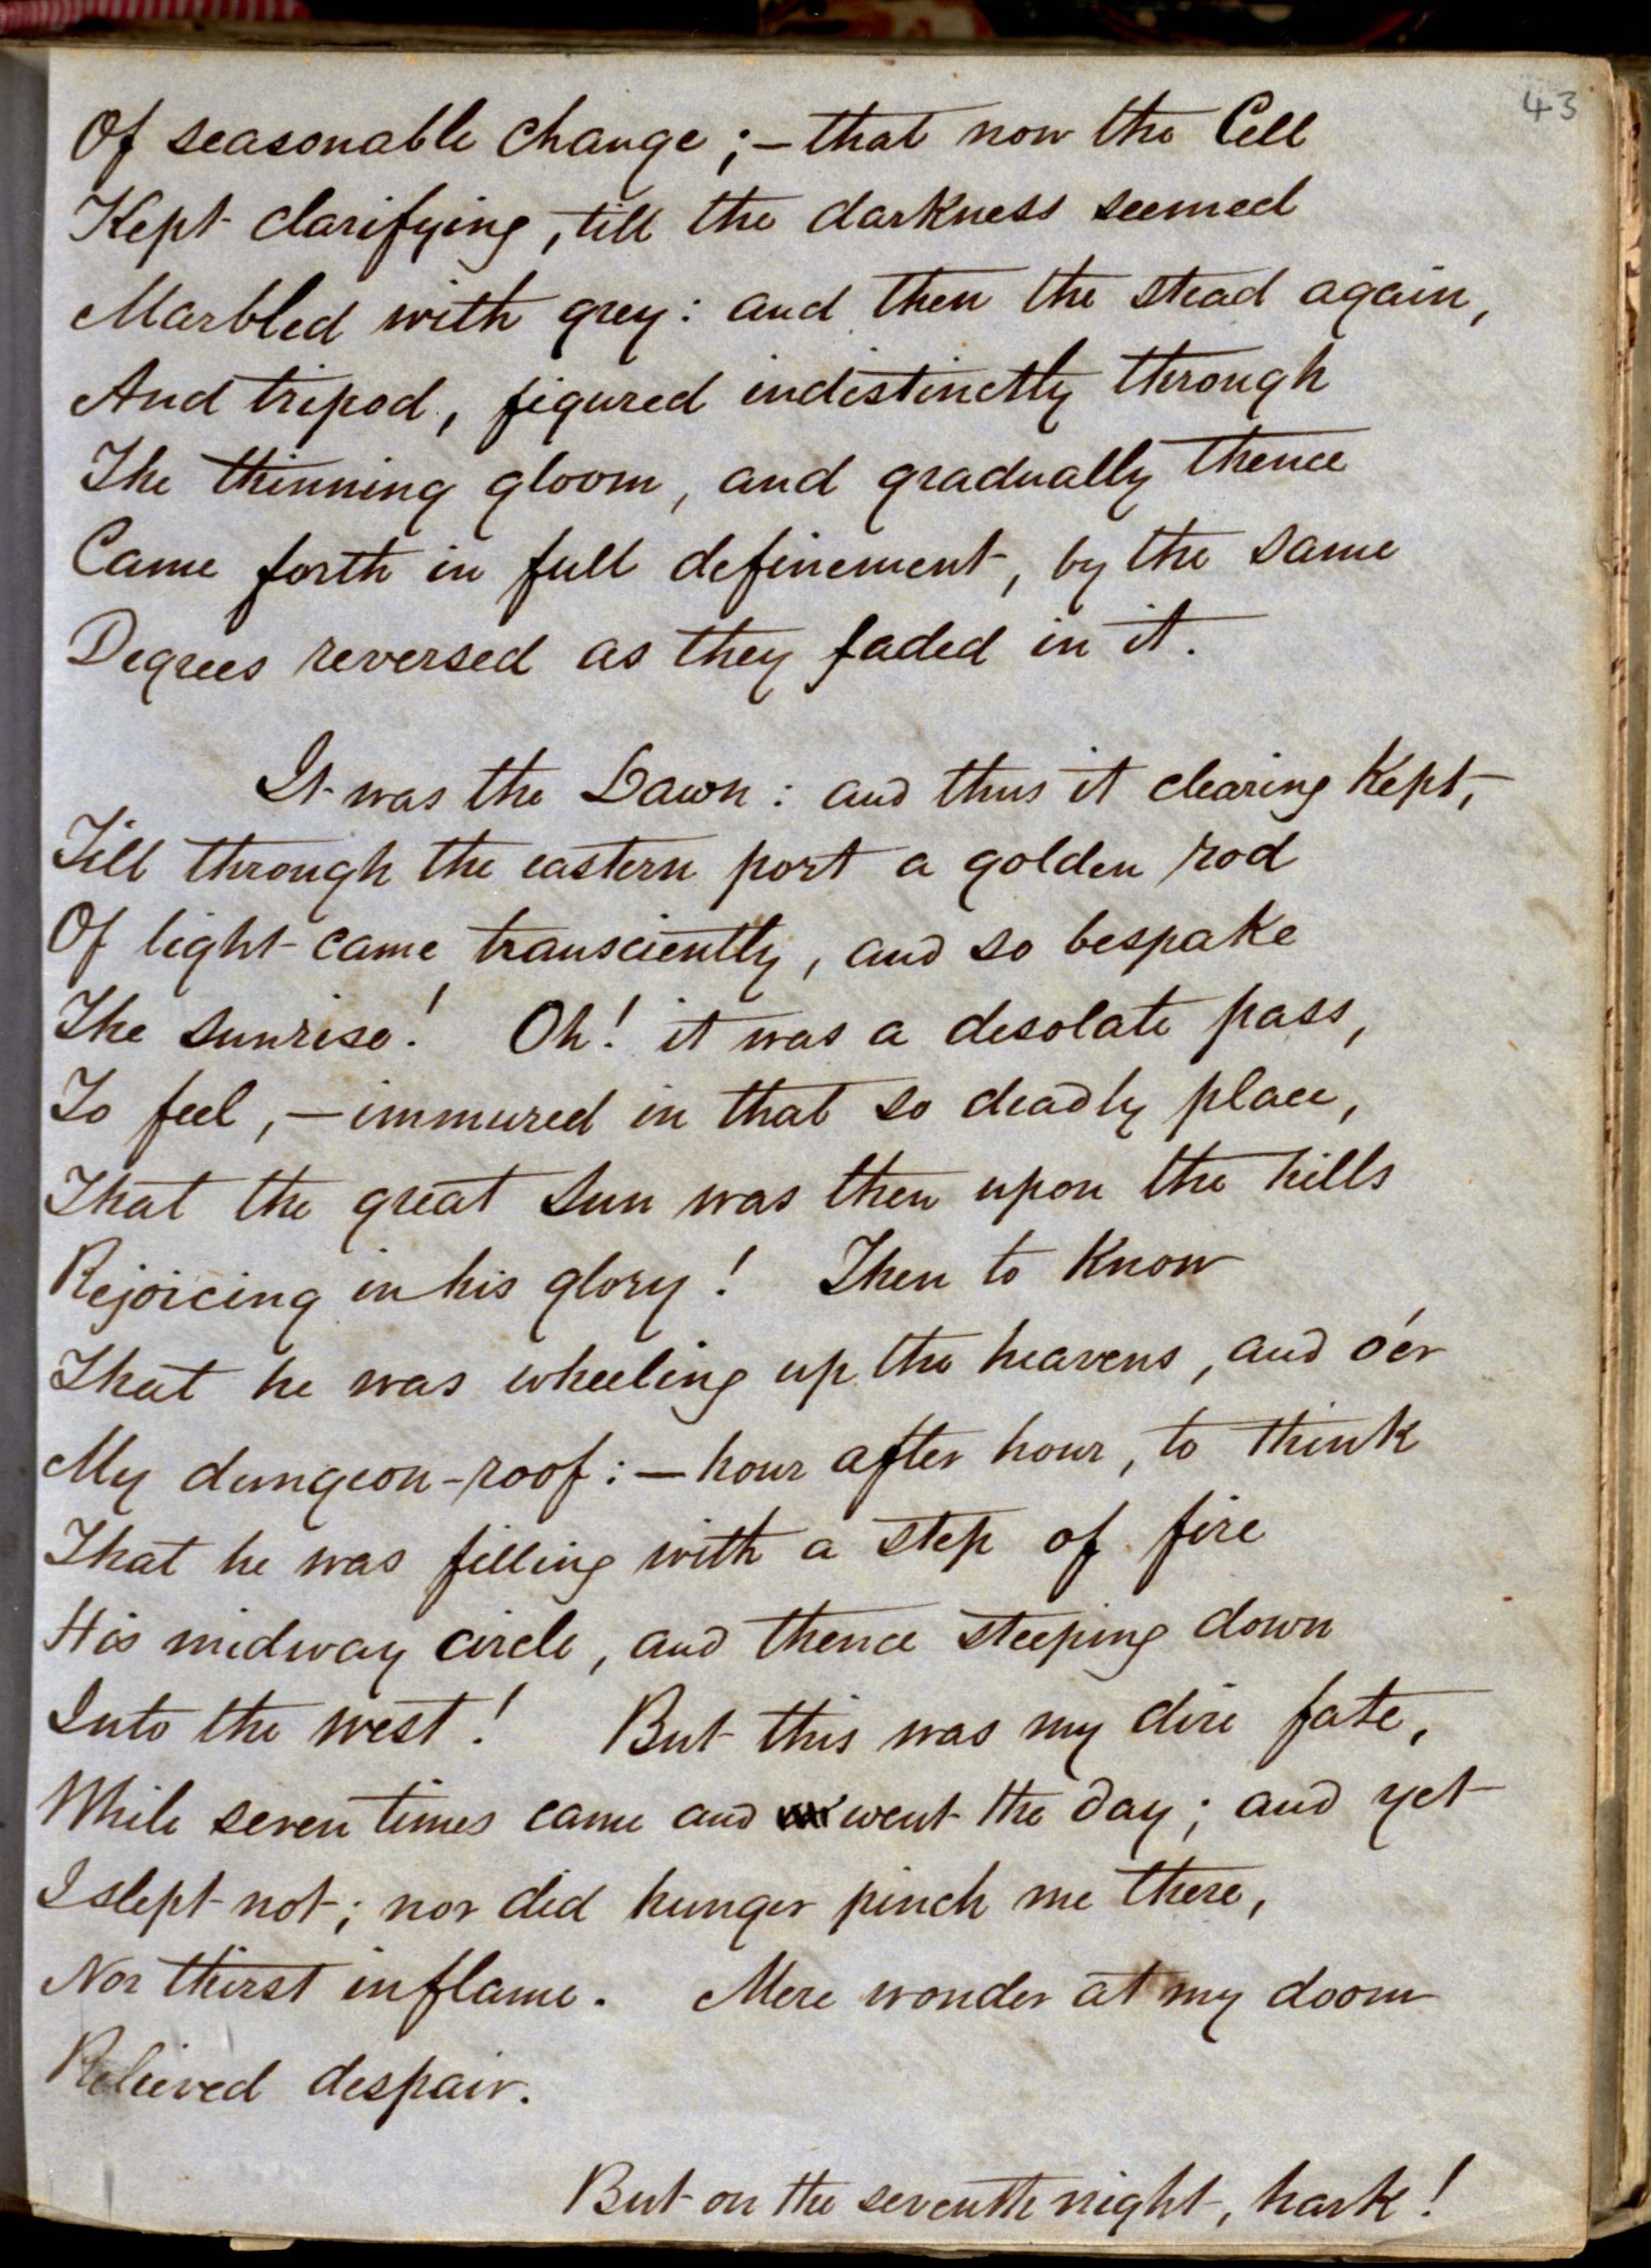 43
Of seasonable change ; – that now the Cell
Kept clarifying, till the darkness seemed
Marbled with grey : and then the stead again,
And tripod, figured indistinctly through
The thinning gloom, and gradually thence
Came forth in full definement, by the same
Degrees reversed as they faded in it.
It was the Dawn : and thus it clearing kept,
Till through the eastern port a golden rod
Of light came transciently, and so bespake
The sunrise! Oh! it was a desolate pass,
To feel, – immured in that so deadly place,
That the great Sun was then upon the hills
Rejoicing in his glory! Then to know
That he was wheeling up the heavens, and o'er
My dungeon-roof : – hour after hour, to think
That he was filling with a step of fire
His midway circle, and thence steeping down
Into the west! But this was my dire fate,
While seven times came and went the day; and yet
I slept not; nor did hunger pinch me there,
Nor thirst inflame. Mere wonder at my doom
Relieved despair.
But on the seventh night, hark!